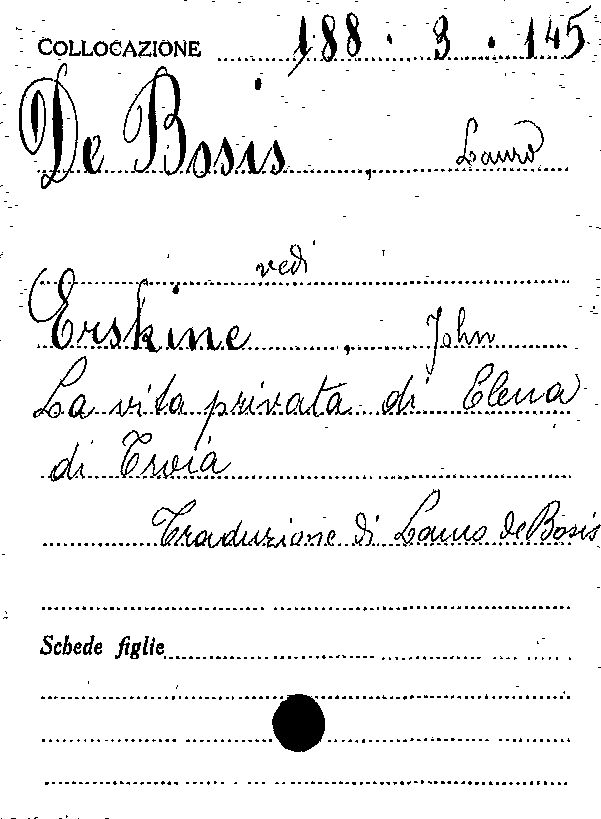 COLLOCAZIONE 188.3.145
De Bosis, Lauro
vedi
Erskine, John
La vita privata di Elena
di Troia
Traduzione di Lauro de Bosis
Schede figlie